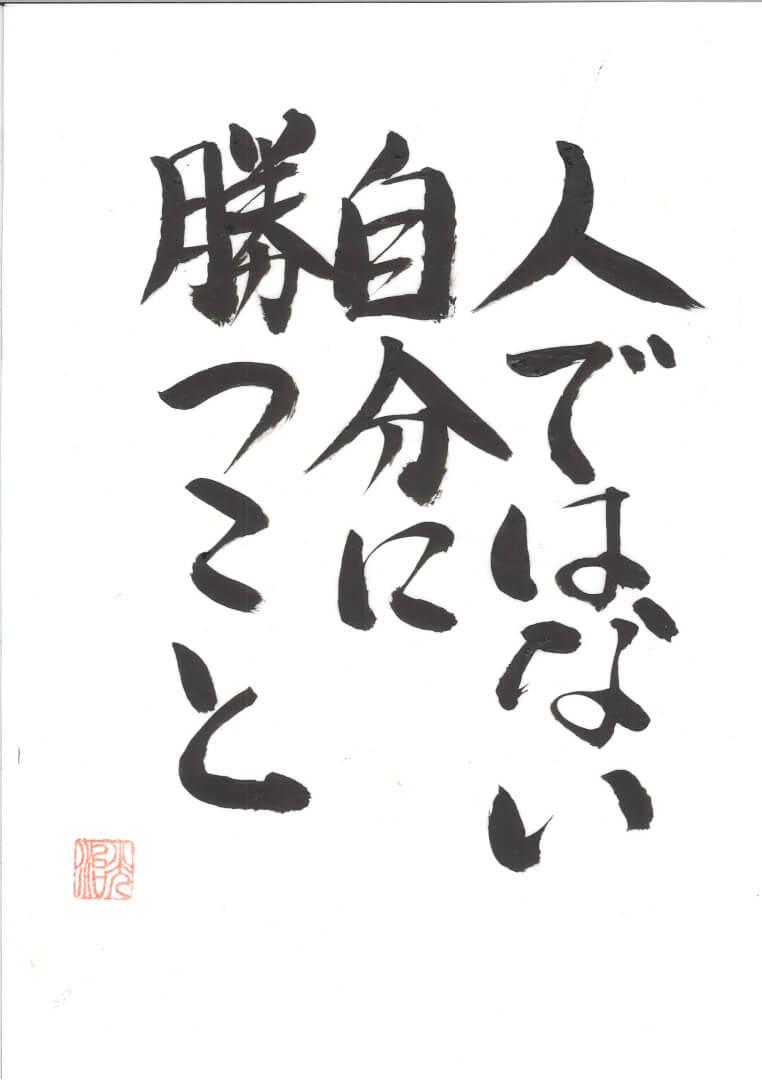 人ではない
自分に
勝つこと